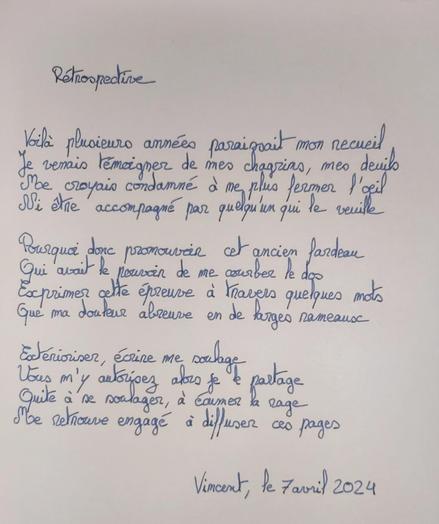 Rétrospective
Voilà plusieurs années paraissait mon recueil
Je venais témoigner de mes chagrins, mes deuils
Me croyais condamné à ne plus fermer l'œil
Ni être accompagné par quelqu'un qui le veuille
Pourquoi donc promouvoir cet ancien fardeau
Qui avait le pouvoir de me courber le dos
Exprimer cette épreuve à travers quelques mots
Que ma douleur abreuve en de larges rameaux
Extérioriser, écrire me soulage
Vous m'y autorisez alors je le partage
Quite à se soulager, à écumer la rage
Me retrouve engagé à diffuser ces pages
Vincent, le 7 avril 2024